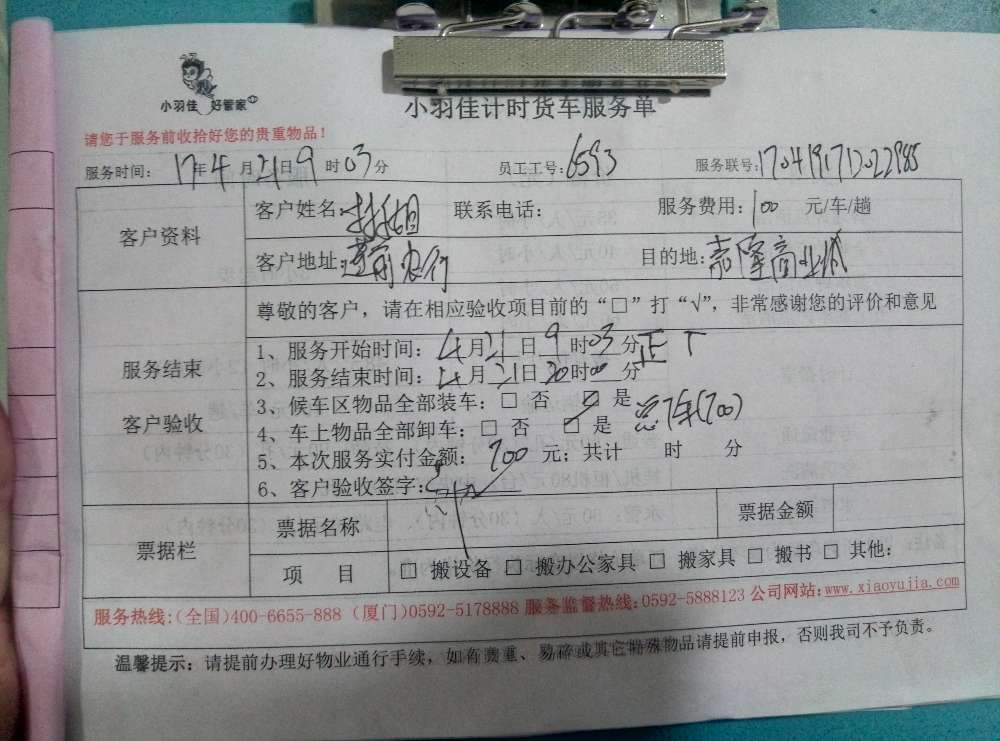 小羽佳 好管家
小羽佳计时货车服务单
请您于服务前收拾好您的贵重物品！
服务时间： 17年4月21日9时03分 员工工号：6593 服务联号：1704191712022985
客户资料
客户姓名： 联系电话： 服务费用：100 元/车/趟
客户地址：莲前农行 目的地：嘉隆商业城
服务结束
客户验收
尊敬的客户，请在相应验收项目前的“□”打“√”，非常感谢您的评价和意见
1、服务开始时间：4月21日9时03分 正丅
2、服务结束时间：4月21日20时00分
3、候车区物品全部装车：□ 否 ☑ 是
4、车上物品全部卸车：□ 否 ☑ 是 总7车(700)
5、本次服务实付金额：700 元；共计 时 分
6、客户验收签字：
票据栏
票据名称 票据金额
项 目 □ 搬设备 □ 搬办公家具 □ 搬家具 □ 搬书 □ 其他：
服务热线:(全国)400-6655-888 (厦门)0592-5178888 服务监督热线:0592-5888123 公司网站:www.xiaoyujia.com
温馨提示：请提前办理好物业通行手续，如有贵重、易碎或其它特殊物品请提前申报，否则我司不予负责。